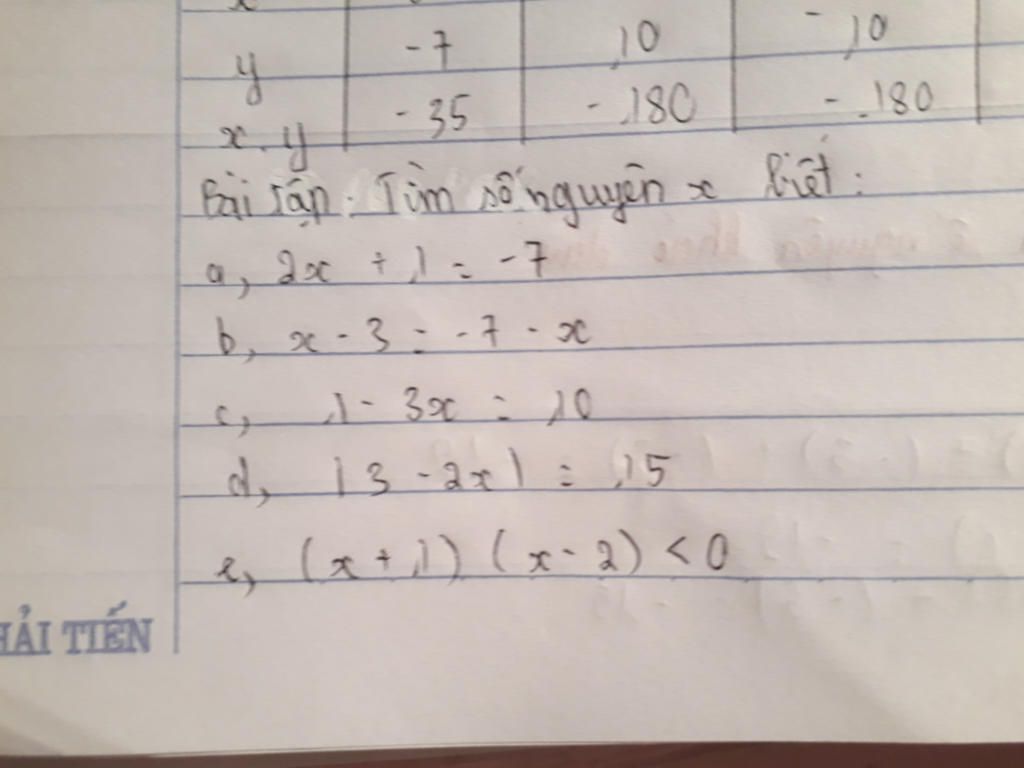 x
y -7 10 -10
x.y -35 -180 -180
Bài tập: Tìm số nguyên x biết:
a, 2x + 1 = -7
b, x - 3 = -7 - x
c, 1 - 3x = 10
d, |3 - 2x| = 15
e, (x + 1) (x - 2) < 0
HẢI TIẾN